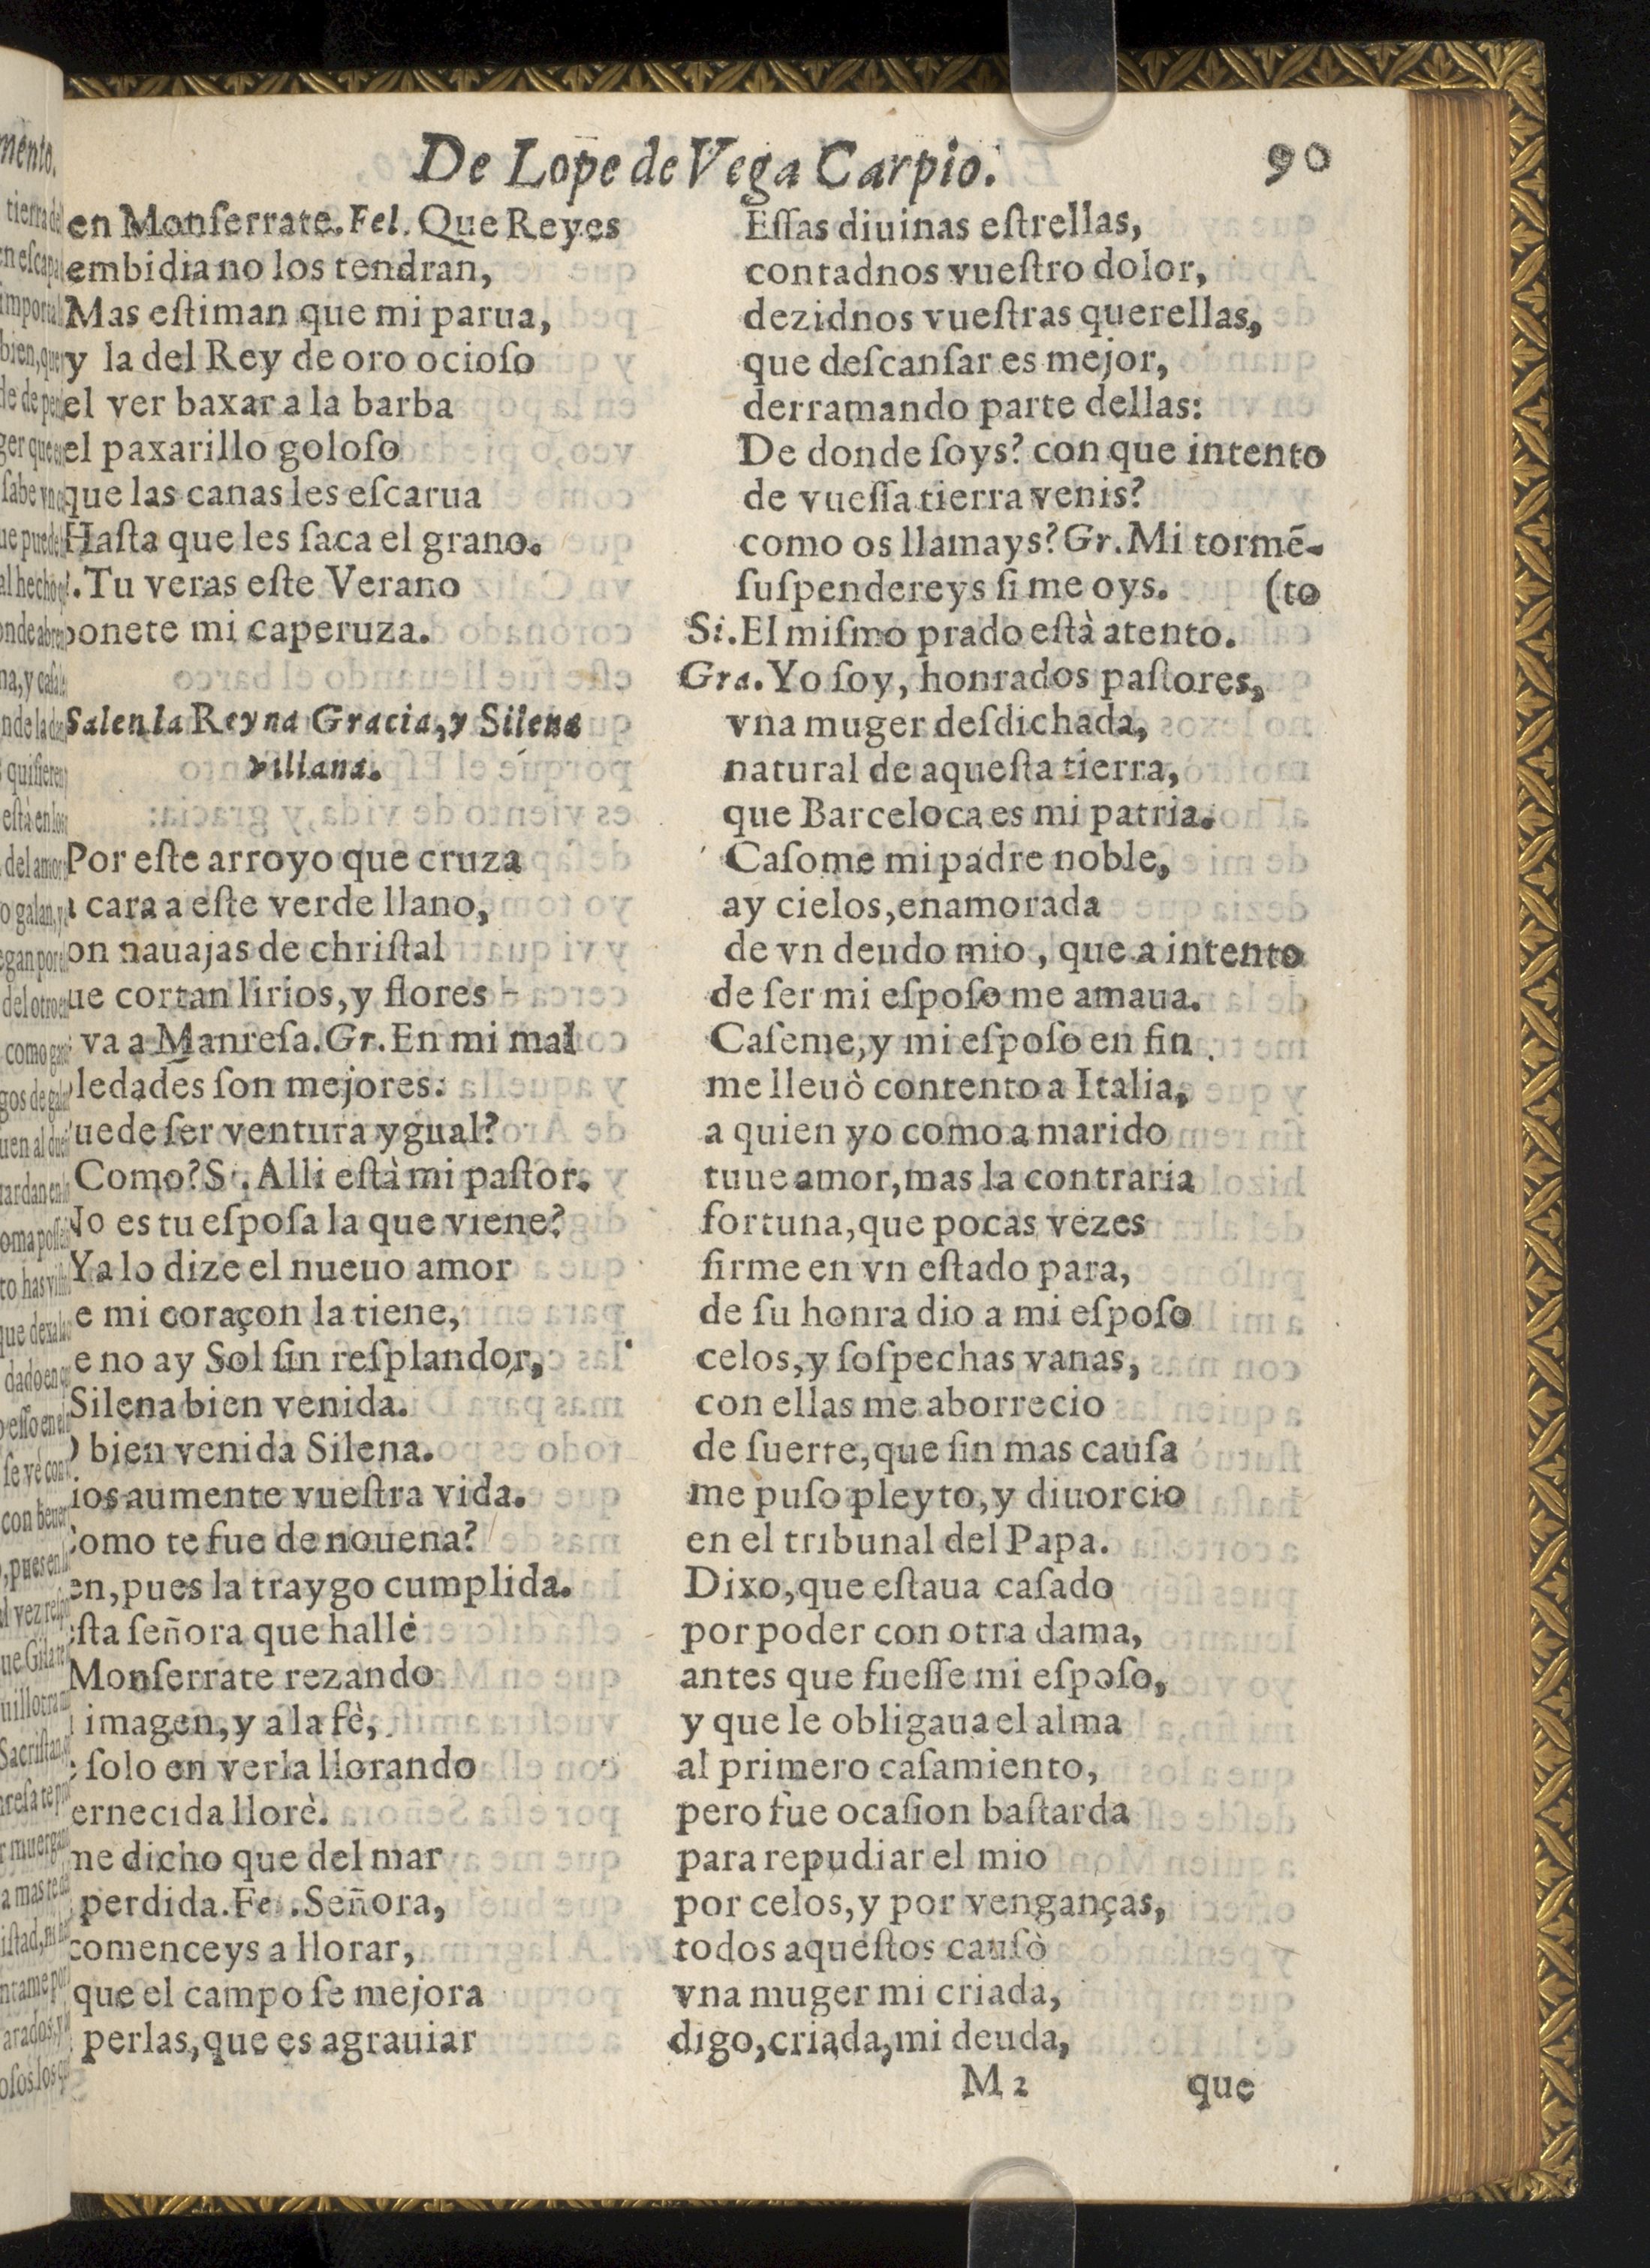 De Lope de Vega Carpio.
90
en Monſerrate. Fel. Que Reyes
embidia no los tendran,
Mas eſtiman que mi parua,
y la del Rey de oro ocioſo
el ver baxar a la barba
el paxarillo goloſo
que las canas les eſcarua
Haſta que les ſaca el grano.
. Tu veras eſte Verano
ponete mi caperuza.
Salen la Reyna Gracia, y Silena
villana.
Por eſte arroyo que cruza
cara a eſte verde llano,
on nauajas de chriſtal
ue cortan lirios, y flores
va a Manreſa. Gr. En mi mal
ledades ſon mejores.
uede ſer ventura ygual?
Como? S. Alli eſtà mi paſtor.
No es tu eſpoſa la que viene?
Ya lo dize el nueuo amor
e mi coraçon la tiene,
e no ay Sol ſin reſplandor,
Silena bien venida.
bien venida Silena.
ios aumente vueſtra vida.
Como te fue de nouena?
en, pues la traygo cumplida.
ſta ſeñora que hallè
Monſerrate rezando
imagen, y a la fè,
ſolo en verla llorando
ernecida llorè.
me dicho que del mar
perdida. Fe. Señora,
comenceys a llorar,
que el campo ſe mejora
perlas, que es agrauiar
Eſſas diuinas eſtrellas,
contadnos vueſtro dolor,
dezidnos vueſtras querellas,
que deſcanſar es mejor,
derramando parte dellas:
De donde ſoys? con que intento
de vueſſa tierra venis?
como os llamays? Gr. Mi tormẽ-
ſuſpendereys ſi me oys. (to
Si. El miſmo prado eſtà atento.
Gra. Yo ſoy, honrados paſtores,
vna muger deſdichada,
natural de aqueſta tierra,
que Barceloca es mi patria.
Caſome mi padre noble,
ay cielos, enamorada
de vn deudo mio, que a intento
de ſer mi eſpoſo me amaua.
Caſeme, y mi eſpoſo en fin
me lleuò contento a Italia,
a quien yo como a marido
tuue amor, mas la contraria
fortuna, que pocas vezes
firme en vn eſtado para,
de ſu honra dio a mi eſpoſo
celos, y ſoſpechas vanas,
con ellas me aborrecio
de ſuerte, que ſin mas cauſa
me puſo pleyto, y diuorcio
en el tribunal del Papa.
Dixo, que eſtaua caſado
por poder con otra dama,
antes que fueſſe mi eſpoſo,
y que le obligaua el alma
al primero caſamiento,
pero fue ocaſion baſtarda
para repudiar el mio
por celos, y por venganças,
todos aqueſtos cauſò
vna muger mi criada,
digo, criada, mi deuda,
M 2 que